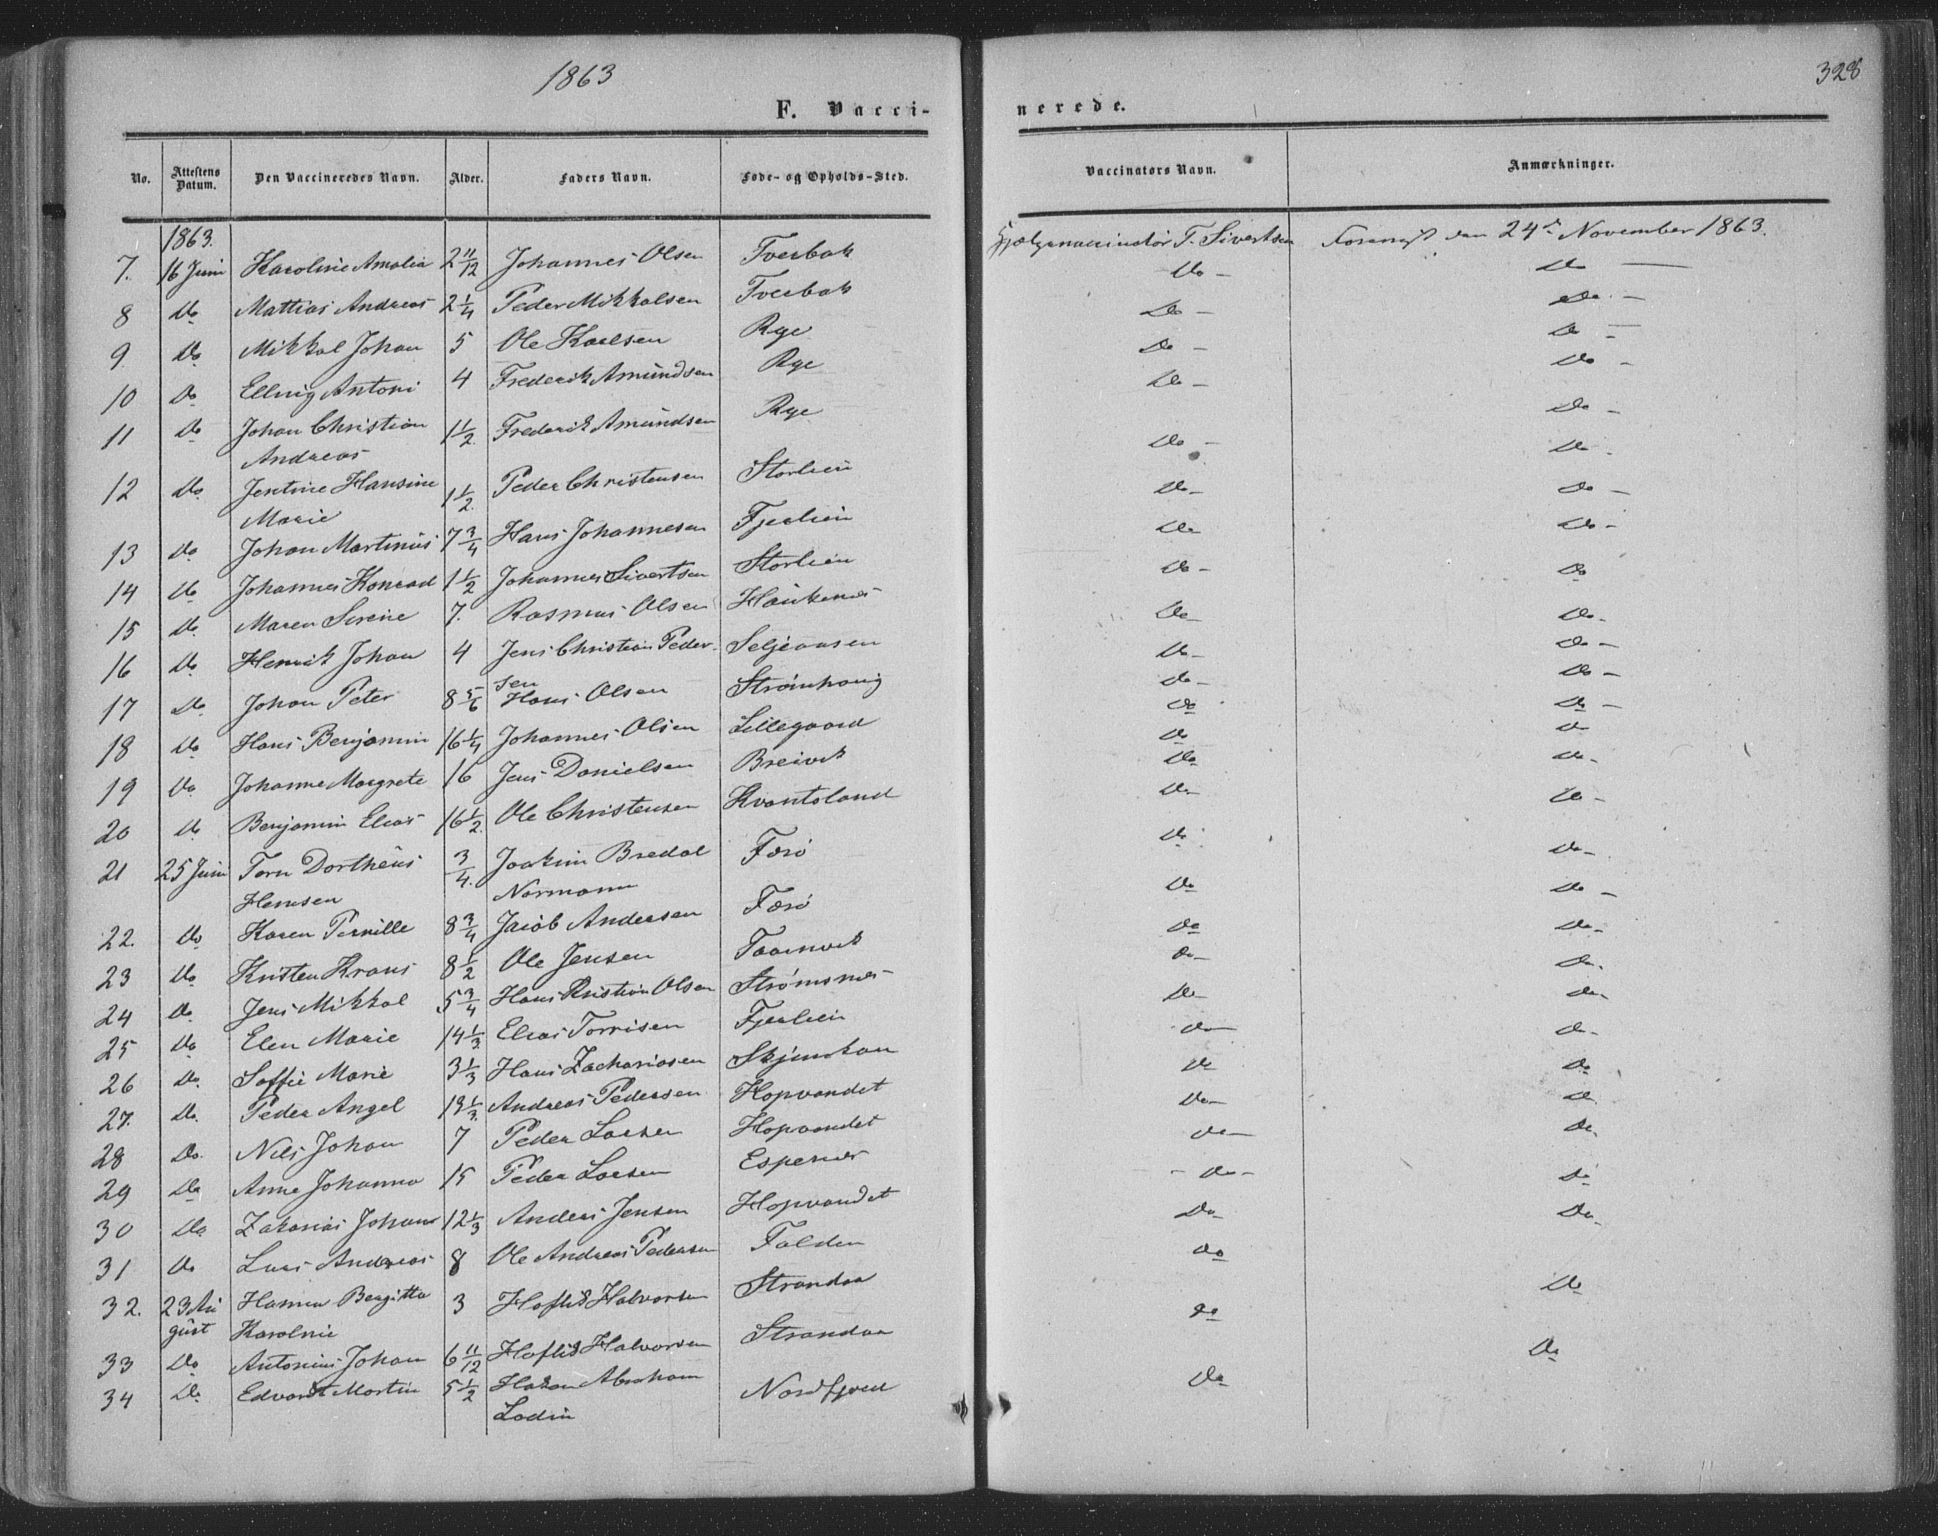 1863
328
F. Vacci-
nerede.
No. Attestens Datum. Den Vaccineredes Navn. Alder. Faders Navn. Føde- og Opholds-Sted. Vaccinators Navn. Anmærkninger.
1863.
7. 16 Juni Karoline Amalia 2 11/12 Johannes Olsen Tverbak T. Sivertsen den 24de November 1863.
8 Do Mattias Andreas 2 1/4 Peder Mikkalsen Tverbak Do - Do -
9. Do Mikkal Johan 5 Ole Karlsen Rye Do - Do -
10 Do Ellvig Antoni 4 Frederik Amundsen Rye Do - Do -
11 Do Johan Christian 1 1/2 Frederik Amundsen Rye Do - Do -
Andreas
12 Do Jentine Hansine 1 1/2 Peder Christensen Storlien Do - Do -
Marie
13 Do Johan Martinus 7 3/4 Hans Johannesen Fjerlien Do - Do
14 Do Johannes Konrad 1 1/2 Johannes Sivertsen Storlien Do Do -
15 Do Maren Serine 7. Rasmus Olsen Haukenes Do Do -
16 Do Henrik Johan 4 Jens Christian Peder- Seljeaasen Do - Do
sen
17 Do Johan Peter 8 5/6 Hans Olsen Strømhaug Do Do -
18 Do Hans Benjamin 16 1/4 Johannes Olsen Lillegaard Do - Do -
19 Do Johanne Margrete 16 Jens Danielsen Breivik Do Do -
20 Do Benjamin Elias 16 1/2 Ole Christensen Kvantoland Do Do
21 25 Juni Torn Dortheus 3/4. Joakim Bredal Færø Do Do -
Hemsen Normann
22. Do Karen Pernille 8 3/4 Jacob Andersen Færø Do Do -
23 Do Kristen Krans 8 1/2 Ole Jensen Taarnvik Do Do -
24 Do Jens Mikkal 5 3/4 Hans Kristian Olsen Strømsnes Do Do -
25 Do Elen Marie 14 1/3 Elias Torrisen Fjerlien Do - Do -
26 Do. Soffie Marie 3 1/3 Hans Zachariasen Do - Do -
27. Do. Peder Angel 13 1/3 Andreas Pedersen Hopvandet Do - Do -
28 Do. Nils Johan 7 Peder Larsen Hopvandet Do Do
29 Do Anne Johanna 15 Peder Larsen Espenes Do - Do
30 Do Zakarias Johan 12 1/3 Anders Jensen Hopvandet Do - Do
31 Do Lars Andreas 8 Ole Andreas Pedersen Falden Do - Do
32. 23 Au Hanna Bergitta 3 Hoflid Halvorsen Strandaa Do Do
gust Karolnie
33 Do Antonius Johan 6 11/12 Hoflid Halvorsen Strandaa Do Do
34 Do Edvard Martin 5 1/2 Hakon Abraham Nordfjord Do Do
Lodin